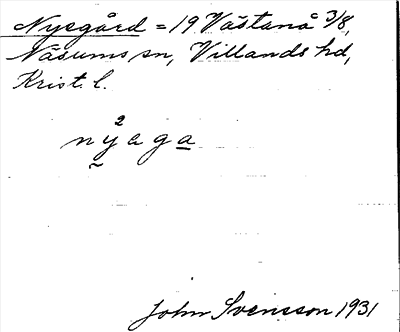 Nyegård = 19 Västanå 3/8,
Näsums sn, Villands hd,
Krist. l.
2
nyaga
John Svensson 1931